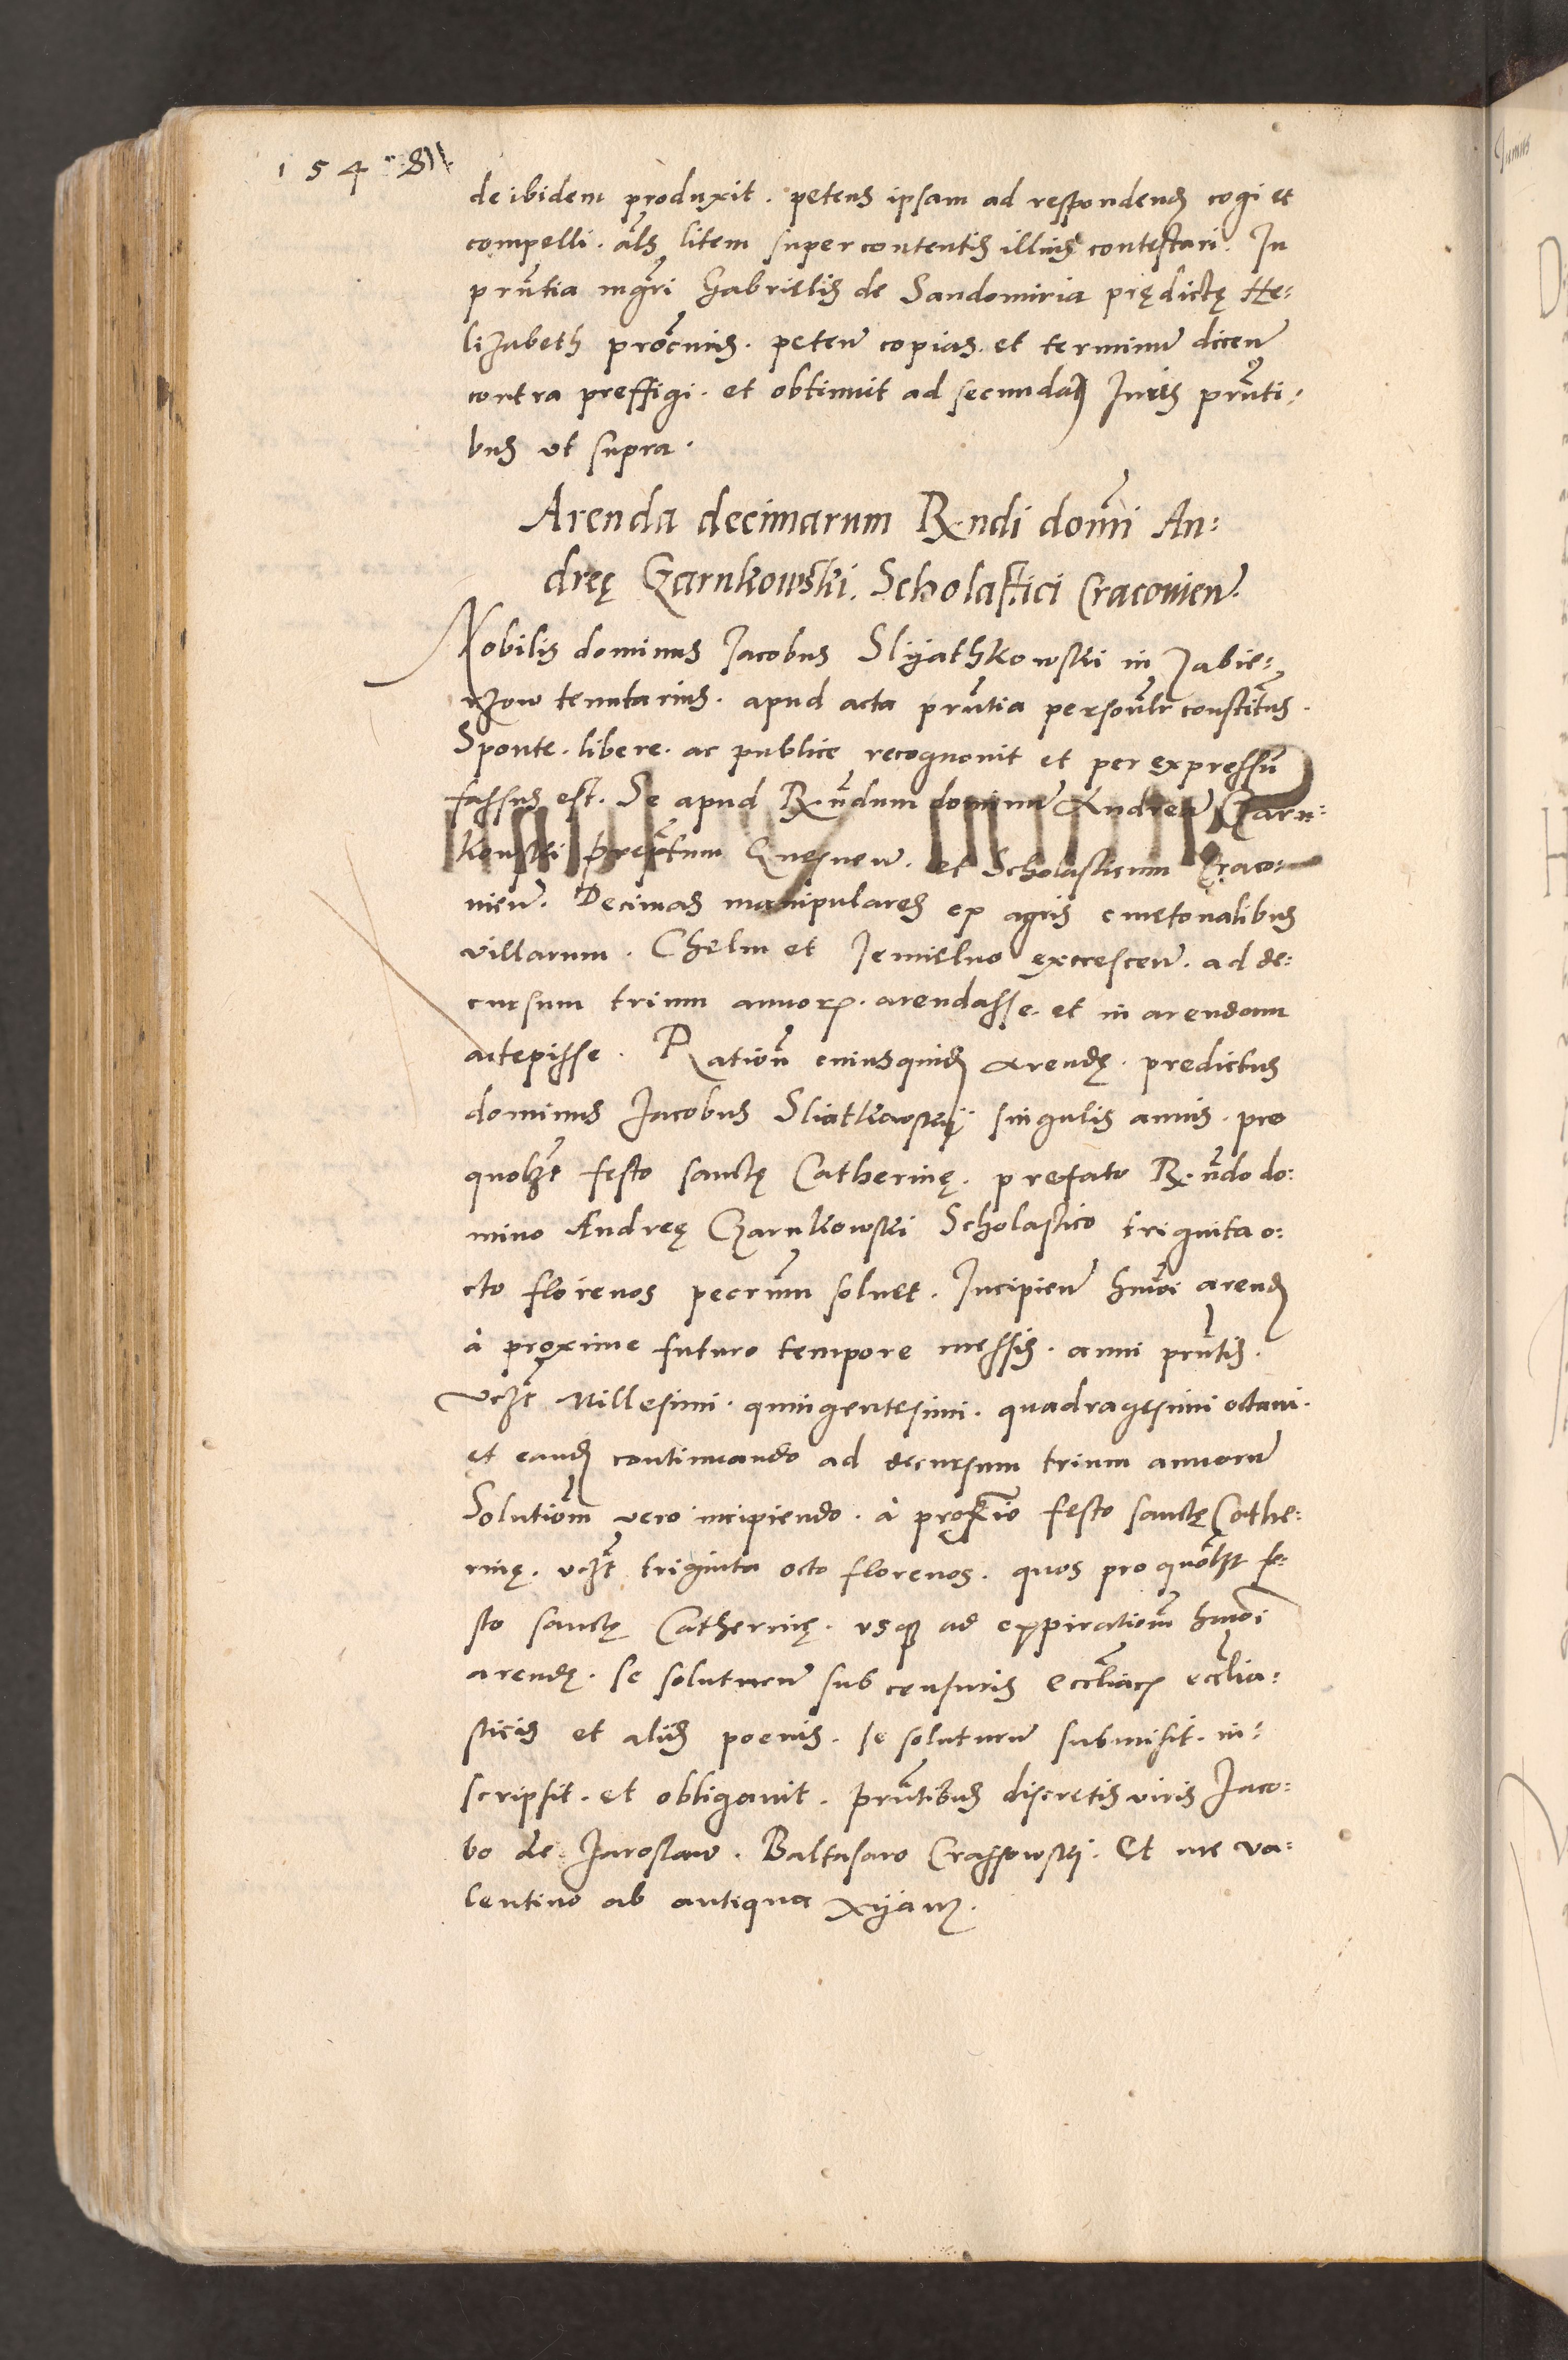 1548
de ibidem produxit. petens ipsam ad respondend cogi et
compelli. als litem super contentis illius contestari. In
pñtia mgri Gabrielis de Sandomiria prędictę He=
lizabeth procuris. peten copias. et terminu dicen
contra preffigi. et obtinuit ad secundam Iuris pñti=
bus vt supra.
Arenda decimarum R. ndi domi An=
dreę Czarnkowski. Scholastici Cracovien.
Nobilis dominus Jacobus Slyathkowski in Jabie=
nzow tenutarius. apud acta pñtia personlr constitus.
Sponte. libere. ac publice recognovit et per expressu
fassus est. Se apud R. ndum dominu Andream Czarn=
kowski prepitum Gnesnen. et Scholasticum Craco=
vien. Decimas manipulares ex agris cmetonalibus
villarum. Chelm et Jemielno excrescen. ad de=
cursum trium annor. arendasse. et in arendam
accepisse. Ration cuiusquid arendę. predictus
dominus Jacobus Sliatkowskij singulis annis. pro
quolzt festo sanctę Catherinę. prefato R. ndo do=
mino Andreę Czarnkowski Scholastico triginta o=
cto florenos pecrum solvet. Incipien hmoi arend
à proxime futuro tempore messis. anni pñtis.
vczt Millesimi. quingentesimi. quadragesimi octavi.
et eand continuando ad decursum trium annoru
Solutiom vero incipiendo. à proximo festo sanctę Cathe=
rinę. vczt triginta octo florenos. quos pro quolzt fe=
sto sanctę Catherinę. vsq ad expirationm hmoi
arendę. se soluturu sub censuris eccliac ecclia=
sticis et aliis poenis. se soluturu submisit. in=
scripsit. et obligavit. Pñtibus discretis viris Jaco=
bo de Jaroslaw. Baltasaro Crassowski. Et me Va=
lentino ab antiqua Xyanz.